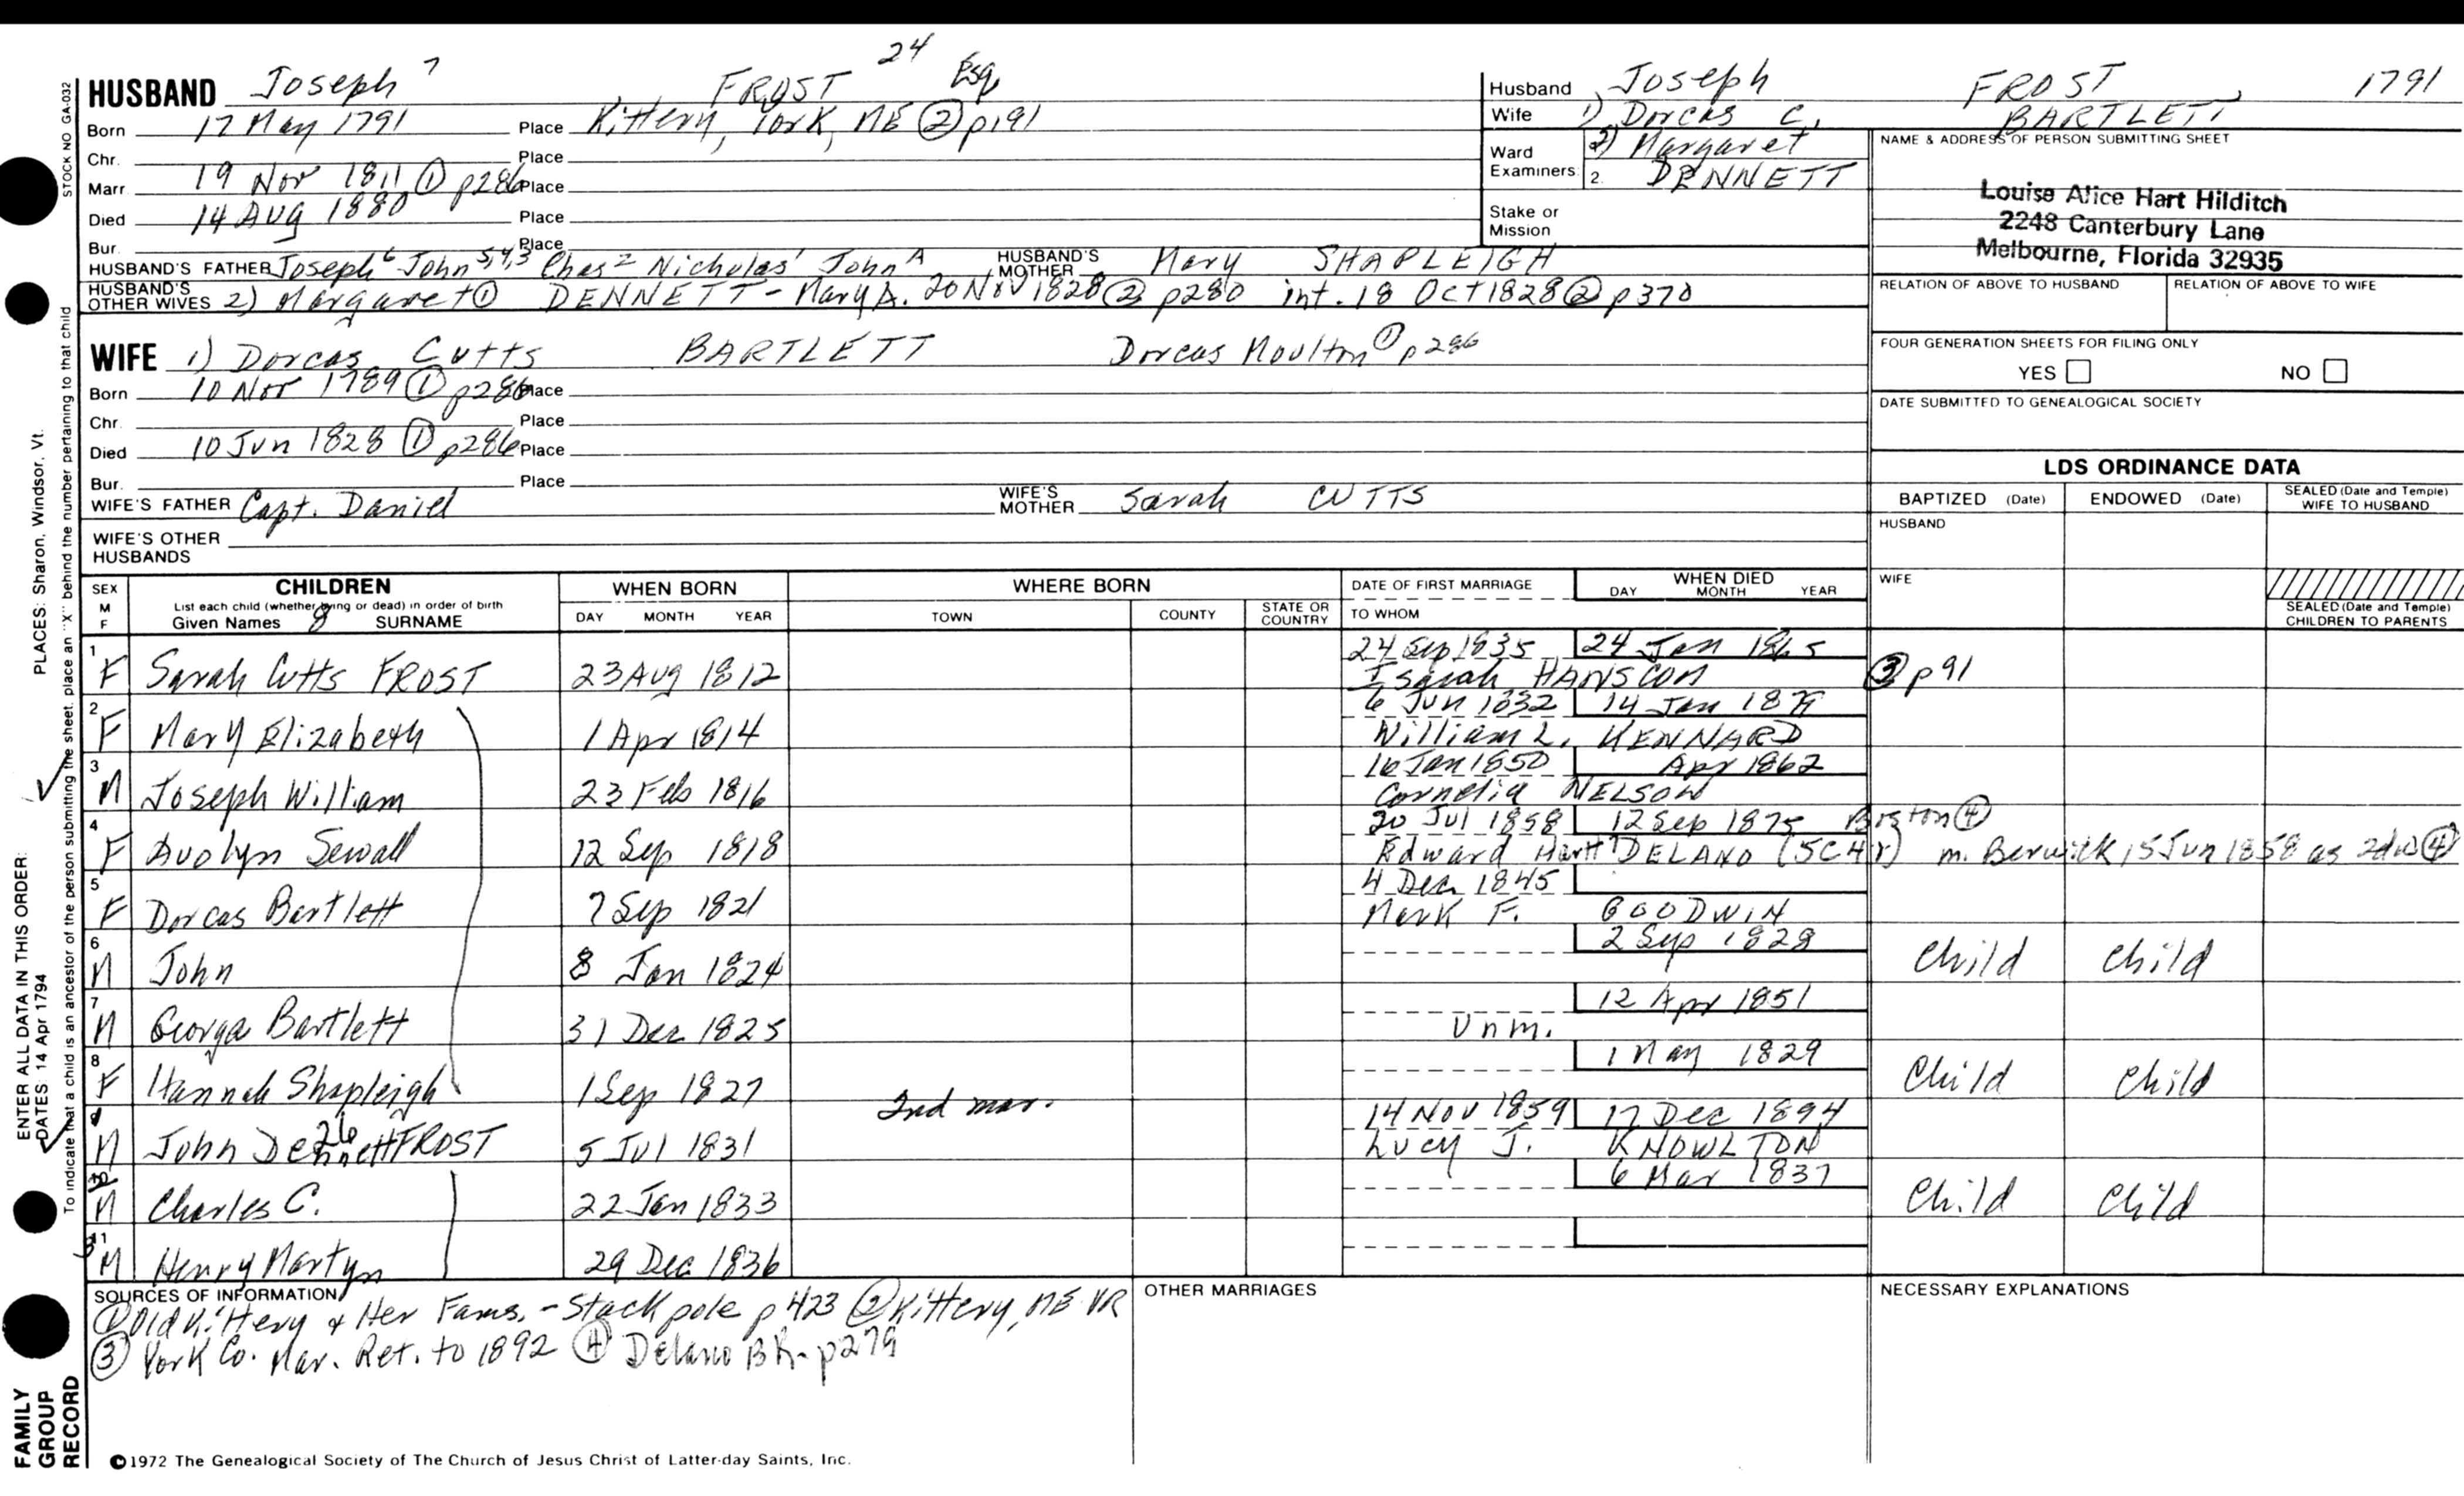 HUSBAND Joseph 7 FROST 24 Esq
Born 17 May 1791 Place Kittery, York, ME ② p191
Chr. Place
Marr 19 Nov 1811 ① p286 Place
Died 14 Aug 1880 Place
Bur. Place
HUSBAND'S FATHER Joseph 6 John 5,4,3 Chas 2 Nicholas 1 John A HUSBAND'S MOTHER Mary SHAPLEIGH
HUSBAND'S OTHER WIVES 2) Margaret ① DENNETT - Mary A. 20 Nov 1828 ② p280 int. 18 Oct 1828 ② p370
WIFE 1) Dorcas Cutts BARTLETT Dorcas Moulton ① p286
Born 10 Nov 1789 ① p286 Place
Chr. Place
Died 10 Jun 1828 ① p286 Place
Bur. Place
WIFE'S FATHER Capt. Daniel WIFE'S MOTHER Sarah CUTTS
WIFE'S OTHER HUSBANDS
Husband Joseph FROST, 1791
Wife 1) Dorcas C. BARTLETT
Ward 2) Margaret
Examiners: 2. DENNETT
Stake or Mission
NAME & ADDRESS OF PERSON SUBMITTING SHEET
Louise Alice Hart Hilditch
2248 Canterbury Lane
Melbourne, Florida 32935
RELATION OF ABOVE TO HUSBAND RELATION OF ABOVE TO WIFE
FOUR GENERATION SHEETS FOR FILING ONLY
YES NO
DATE SUBMITTED TO GENEALOGICAL SOCIETY
LDS ORDINANCE DATA
BAPTIZED (Date) ENDOWED (Date) SEALED (Date and Temple) WIFE TO HUSBAND
HUSBAND
WIFE
SEALED (Date and Temple) CHILDREN TO PARENTS
SEX M F CHILDREN WHEN BORN WHERE BORN DATE OF FIRST MARRIAGE WHEN DIED
List each child (whether living or dead) in order of birth DAY MONTH YEAR TOWN COUNTY STATE OR COUNTRY TO WHOM DAY MONTH YEAR
Given Names 8 SURNAME
1 F Sarah Cutts FROST 23 Aug 1812 24 Sep 1835 24 Jan 1865
Isaiah HANSCOM ③ p91
2 F Mary Elizabeth 1 Apr 1814 6 Jun 1832 14 Jan
William L. KENNARD
3 M Joseph William 23 Feb 1816 16 Jan 1850 Apr 1862
Cornelia NELSON
4 F Avolyn Sewall 12 Sep 1818 20 Jul 1858 12 Sep 1875 Boston ④
Edward Hart 7 DELANO m. Berwick 15 Jun 1858 as 2d w ④
5 F Dorcas Bartlett 7 Sep 1821 4 Dec 1845
Mark F. GOODWIN
6 M John 8 Jan 1824 2 Sep 1828 Child Child
7 M George Bartlett 31 Dec 1825 12 Apr 1851
Unm.
8 F Hannah Shapleigh 1 Sep 1827 1 May 1829 Child Child
2nd mar.
M John Dennett FROST 26 5 Jul 1831 14 Nov 1859 17 Dec 1894
Lucy J. KNOWLTON
M Charles C. 22 Jan 1833 6 Mar 1837 Child Child
11 3 M Henry Martyn 29 Dec 1836
SOURCES OF INFORMATION OTHER MARRIAGES NECESSARY EXPLANATIONS
① Old Kittery & Her Fams. - Stackpole p 423 ② Kittery, ME VR
③ York Co. Mar. Ret. to 1892 ④ Delano BK- p279
©1972 The Genealogical Society of The Church of Jesus Christ of Latter-day Saints, Inc.
STOCK NO GA-032
PLACES: Sharon, Windsor, Vt.
ENTER ALL DATA IN THIS ORDER:
DATES: 14 Apr 1794
To indicate that a child is an ancestor of the person submitting the sheet, place an "X" behind the number pertaining to that child
FAMILY
GROUP
RECORD